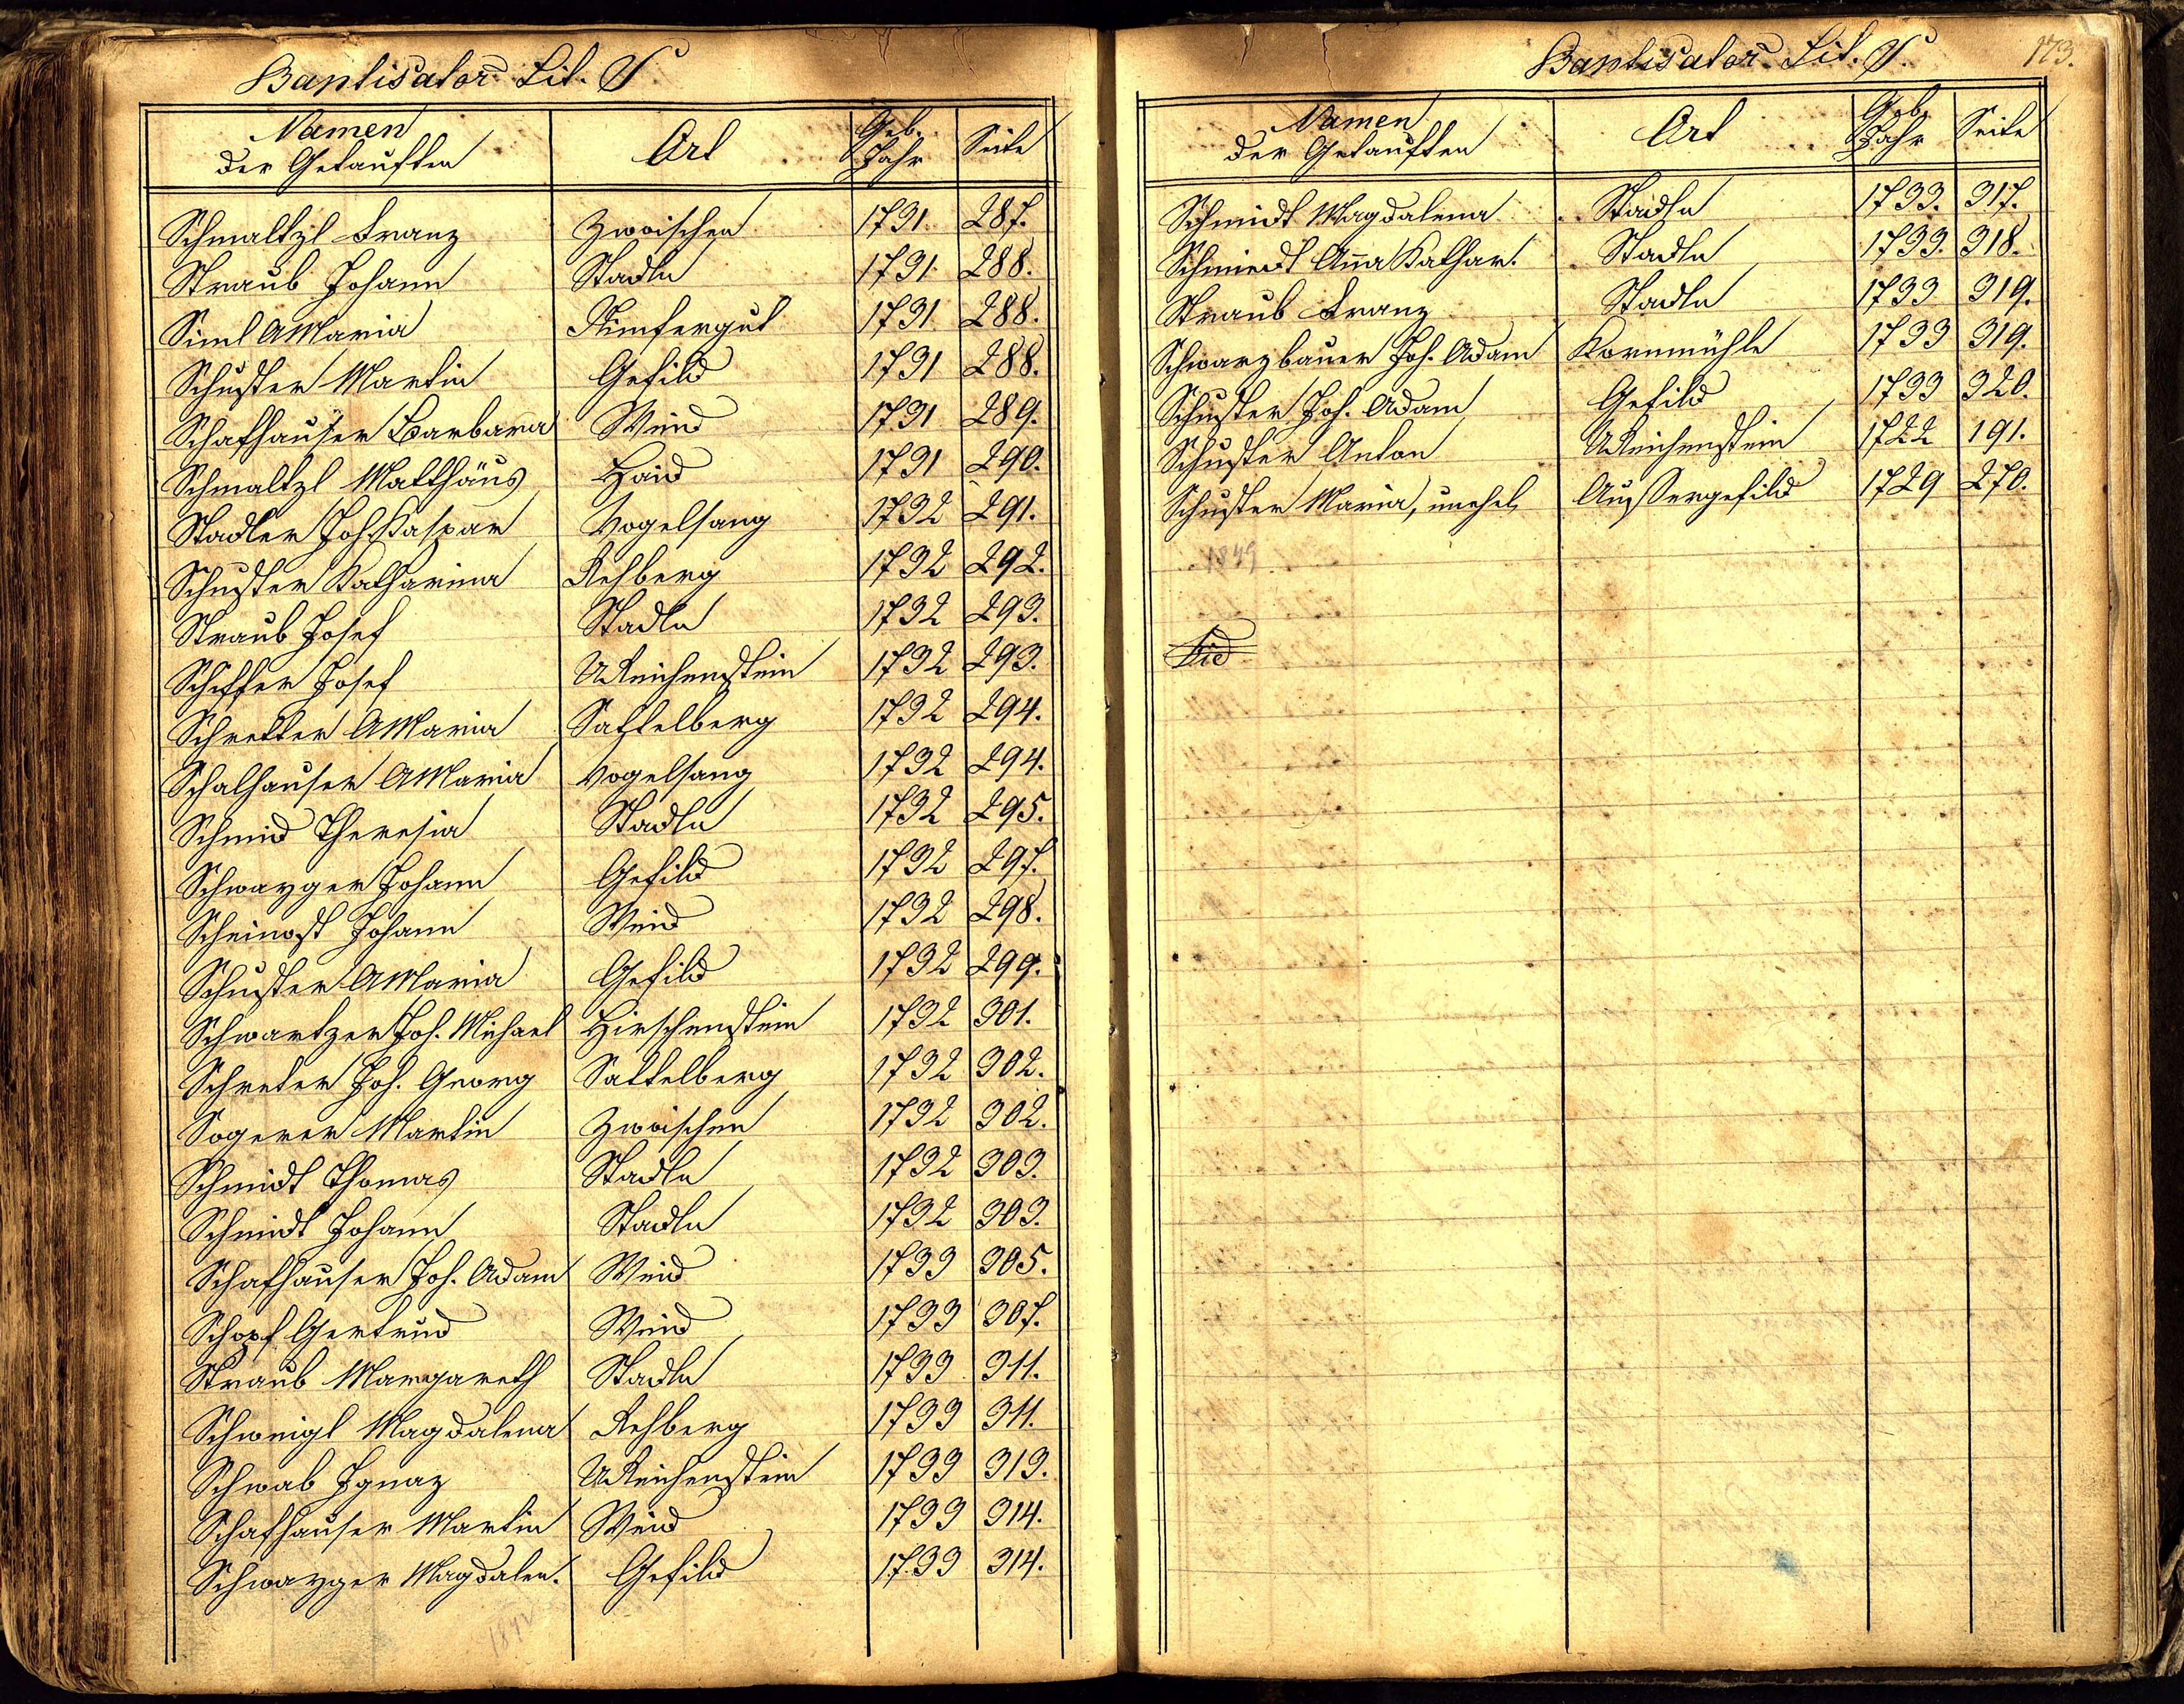 Baptisator Lit. S
Namen der Getauften Ort Geb. Jahr Seite
Schmaltzl Franz Zwoischen 1731 287.
Straub Johann Stadln 1731 288.
Siml AMaria 1731 288.
Schuster Martin Gefild 1731 288.
Schafhauser Barbara Weid 1731 289.
Schmaltzl Matthäus Haid 1731 290.
Stadler Joh. Kaspar Vogelsang 1732 291.
Schuster Katharina Rehberg 1732 292.
Straub Josef Stadln 1732 293.
Schiffer Josef UReichenstein 1732 293.
Schretter AMaria Sattelberg 1732 294.
Schalhauser AMaria Vogelsang 1732 294.
Schmid Theresia Stadln 1732 295.
Schwayger Johann Gefild 1732 297.
Scheinost Johann Weid 1732 298.
Schuster AMaria Gefild 1732 299.
Schwartzer Joh. Michael Hirschenstein 1732 301.
Schreter Joh. Georg Sattelberg 1732 302.
Sogerer Martin Zwoischen 1732 302.
Schmidt Thomas Stadln 1732 303.
Schmidt Johann Stadln 1732 303.
Schafhauser Joh. Adam Weid 1733 305.
Schopf Gertrud Weid 1733 307.
Straub Margareth Stadln 1733 311.
Schweigl Magdalena Rehberg 1733 311.
Schwab Ignaz UReichenstein 1733 313.
Schafhauser Martin Weid 1733 314.
Schwayger Magdalen. Gefild 1733 314.
Baptisator Lit. S.
173.
Namen der Getauften Ort Geb. Jahr Seite
Schmidt Magdalena Stadln 1733. 317.
Schmiedt Anna Kathar. Stadln 1733. 318.
Straub Franz Stadln 1733 319.
Schwarzbauer Joh. Adam Kornmühle 1733 319.
Schuster Joh. Adam Gefild 1733 320.
Schuster Anton UReichenstein 1722 191.
Schuster Maria, unehel. Aussergefild 1729 270.
1849